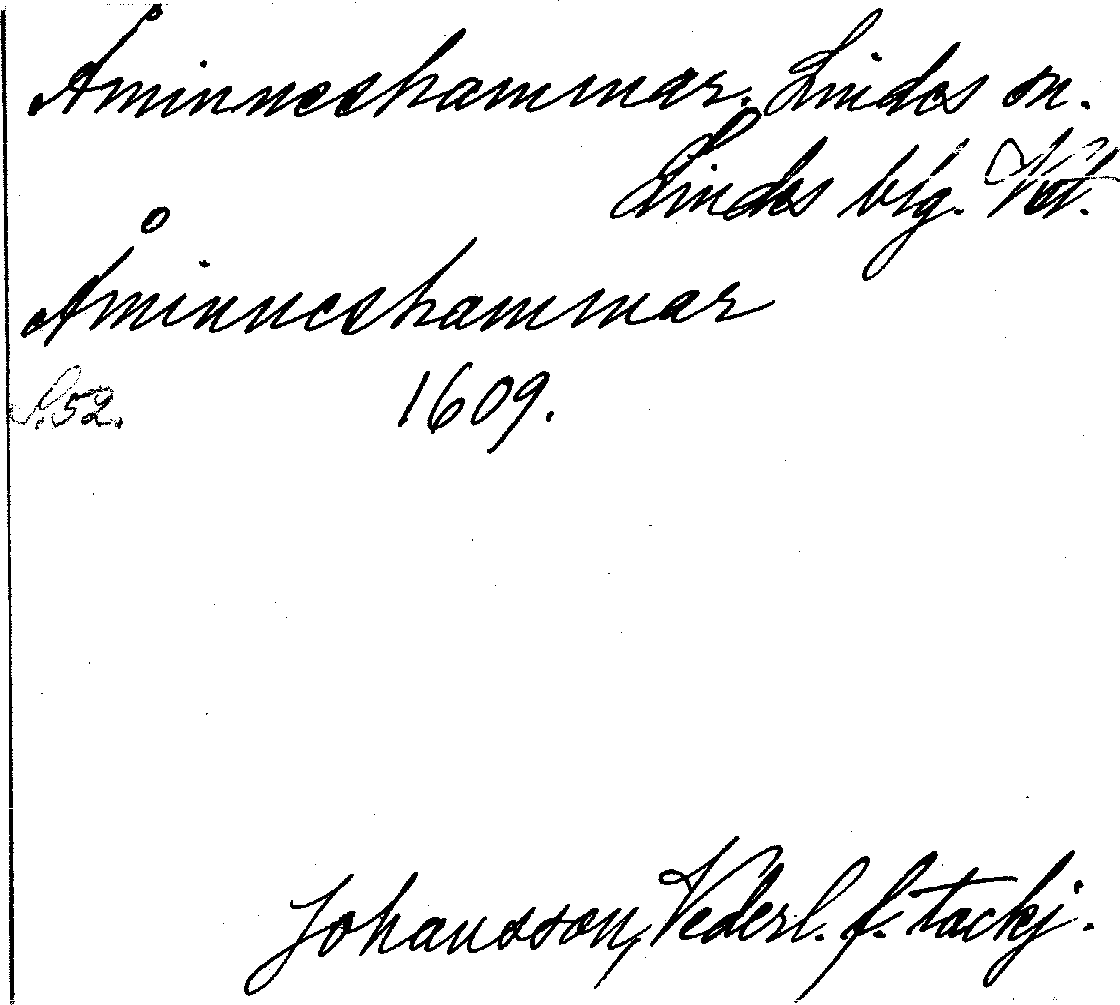 Åminneshammar. Lindes sn.
Lindes blg. Vst.
Åminneshammar
S. 52. 1609.
Johansson, Vederl. f. tackj.